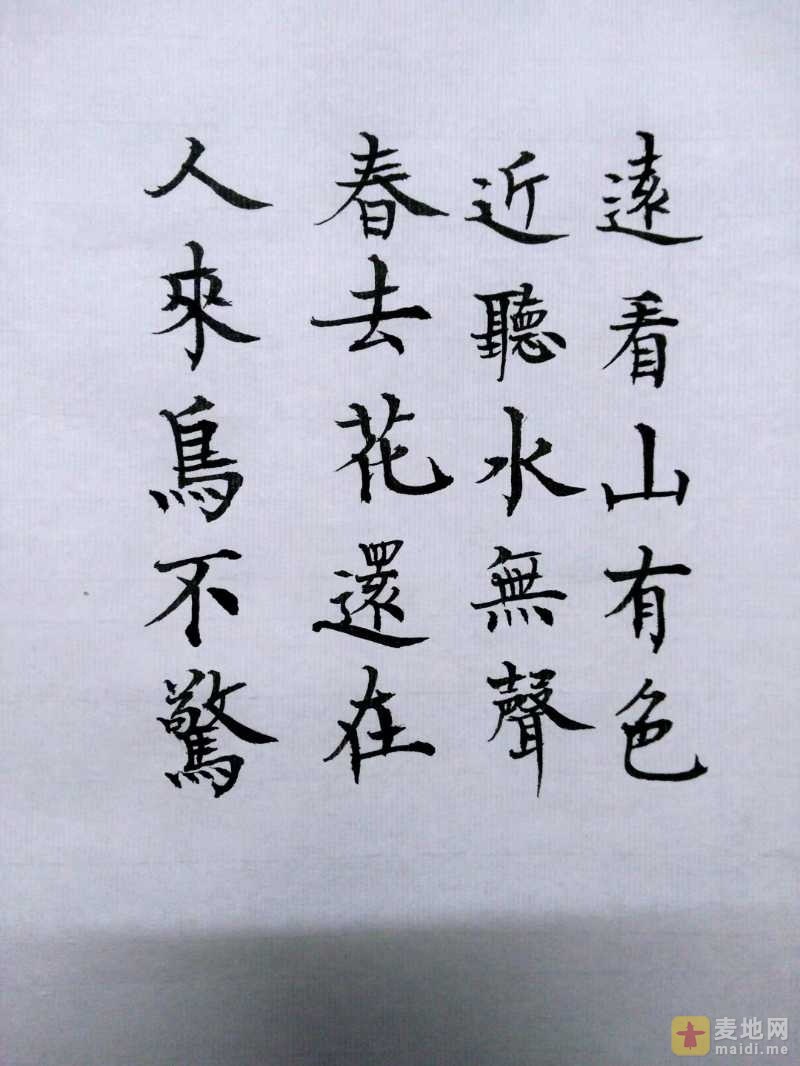 遠看山有色
近聽水無聲
春去花還在
人來鳥不驚
麦地网
maidi.me